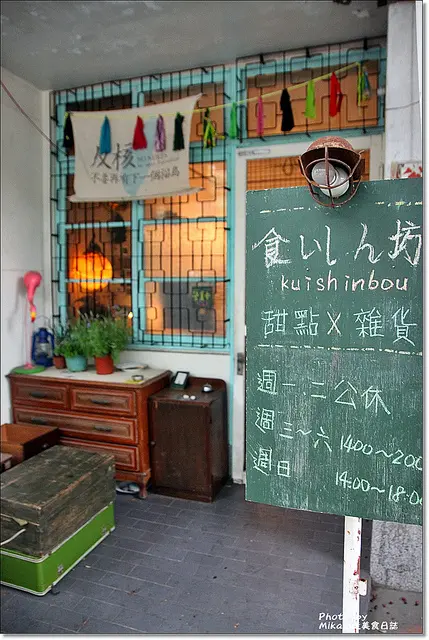 反核
不要再有下一個福島
食いしん坊
kuishinbou
甜點 X 雜貨
週一.二公休
週三~六 14:00~20:0
週日 14:00~18:00
Photo by
Mika 美食日誌